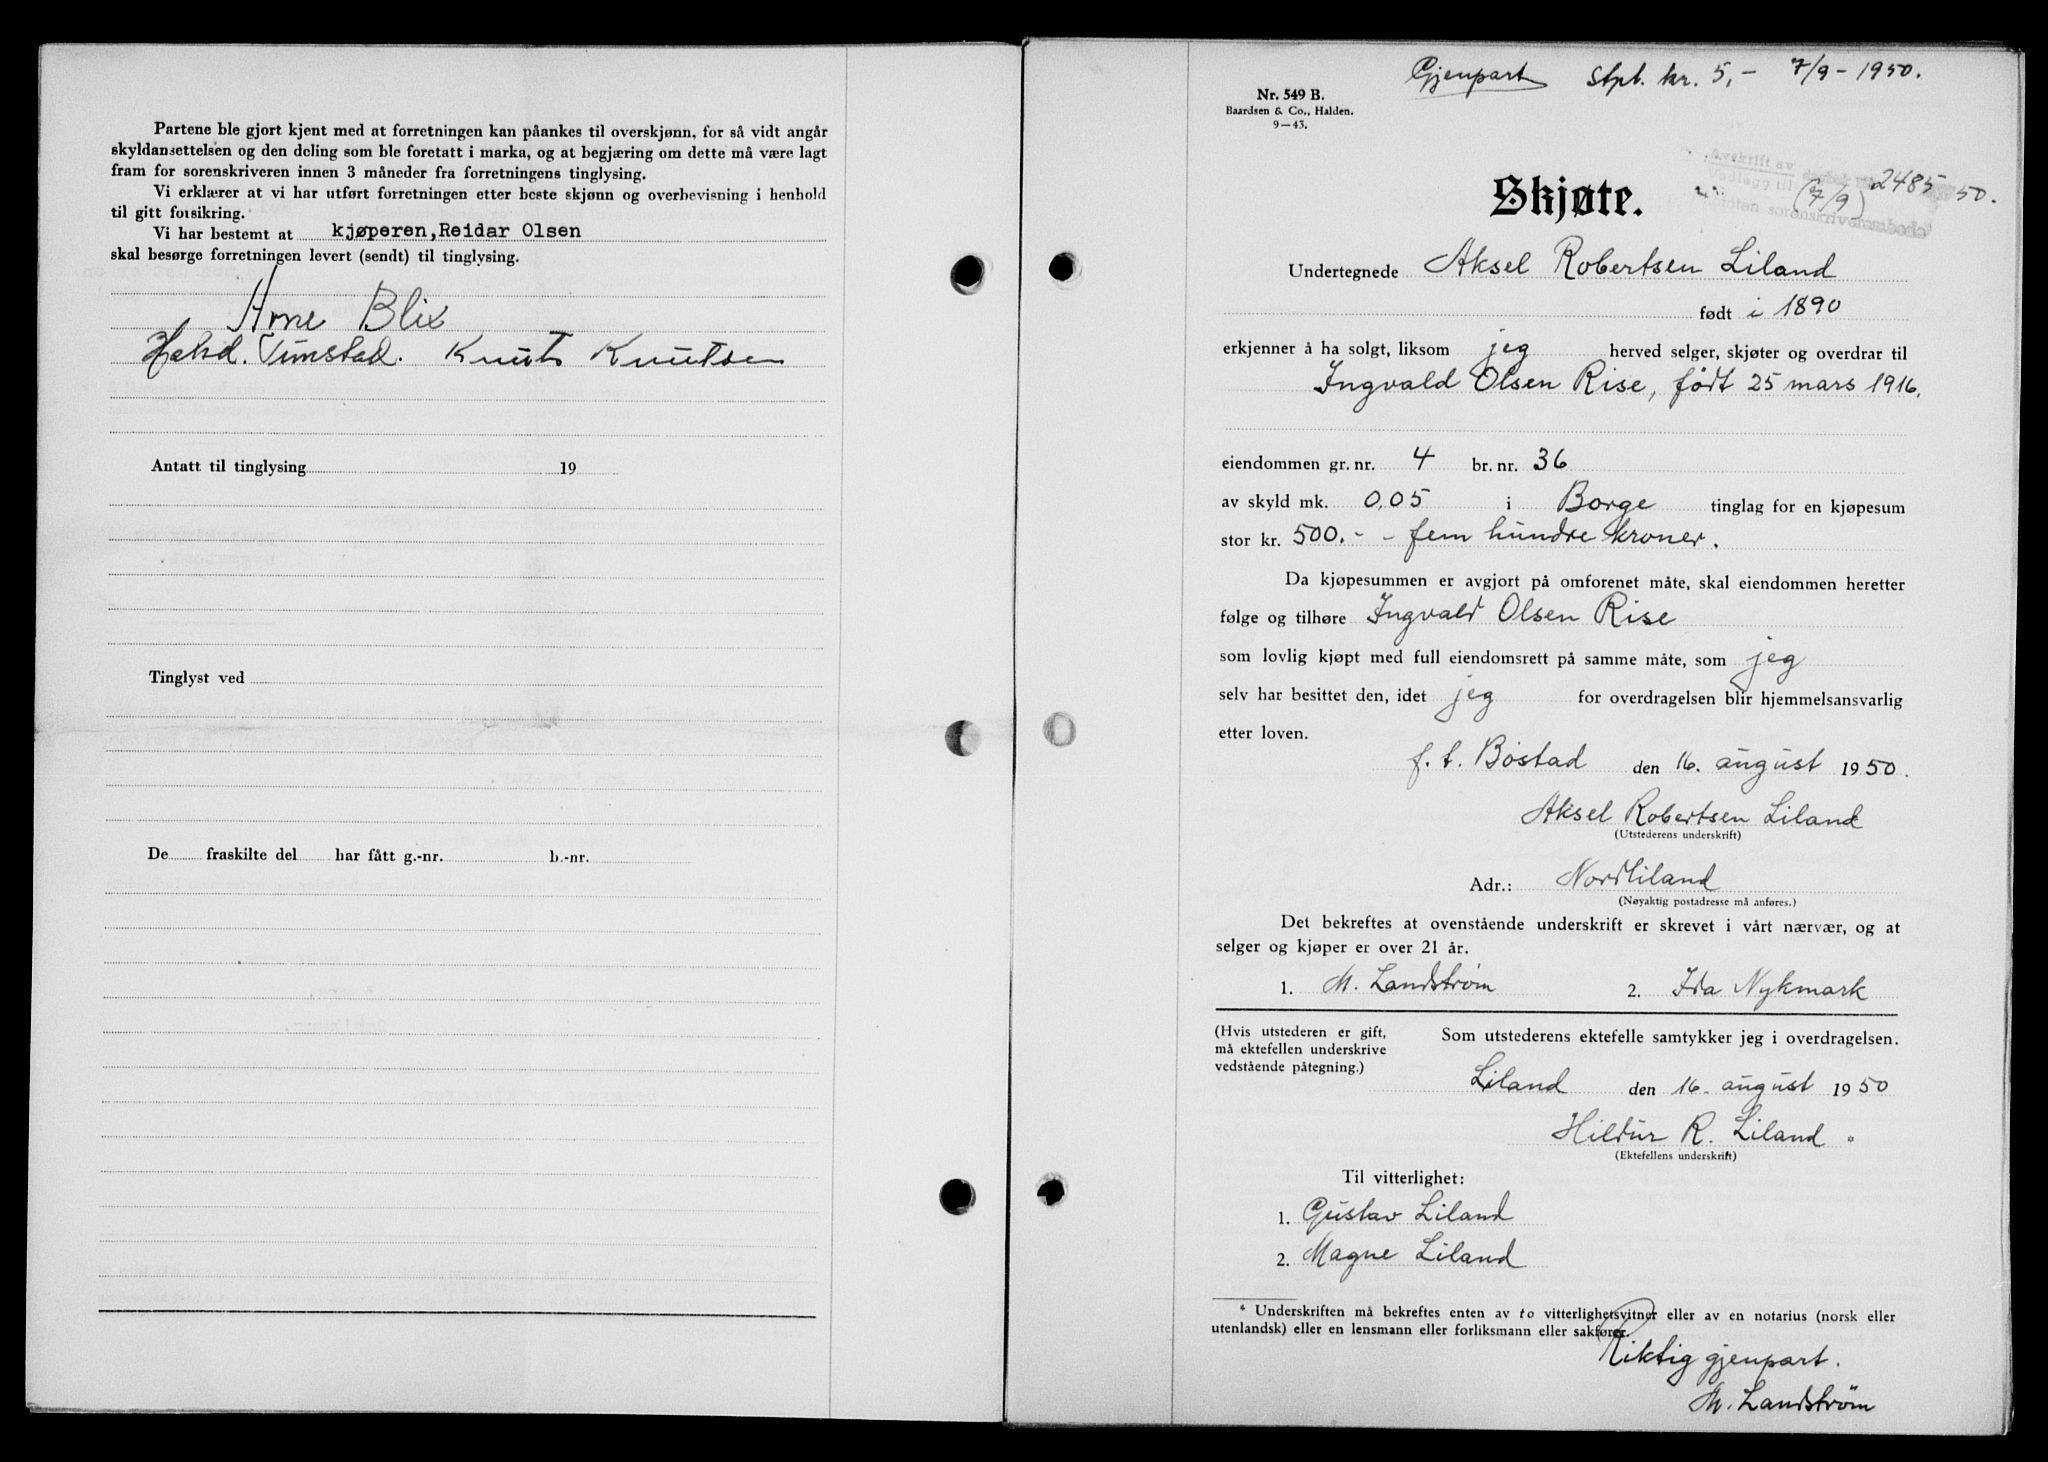 Partene ble gjort kjent med at forretningen kan påankes til overskjønn, for så vidt angår
skyldansettelsen og den deling som ble foretatt i marka, og at begjæring om dette må være lagt
fram for sorenskriveren innen 3 måneder fra forretningens tinglysing.
Vi erklærer at vi har utført forretningen etter beste skjønn og overbevisning i henhold
til gitt forsikring.
Vi har bestemt at kjøperen, Reidar Olsen
skal besørge forretningen levert (sendt) til tinglysing.
Arne Blix
Hakd. Timstad. Knut Knutsen
Antatt til tinglysing 19
Tinglyst ved
De fraskilte del har fått g.-nr. b.-nr.
Gjenpart Stpl. kr. 5,- 7/9-1950.
Nr. 549 B.
Baardsen & Co., Halden.
9-43.
Avskrift av
Vedlagg til
2485 50.
(7/9)
Lofoten sorenskriverembede
Skjøte.
Undertegnede Aksel Robertsen Liland
født i 1890
erkjenner å ha solgt, liksom jeg herved selger, skjøter og overdrar til
Ingvald Olsen Rise, født 25 mars 1916.
eiendommen gr. nr. 4 br. nr. 36
av skyld mk. 0,05 i Borge tinglag for en kjøpesum
stor kr. 500.- - fem hundre kroner.
Da kjøpesummen er avgjort på omforenet måte, skal eiendommen heretter
følge og tilhøre Ingvald Olsen Rise
som lovlig kjøpt med full eiendomsrett på samme måte, som jeg
selv har besittet den, idet jeg for overdragelsen blir hjemmelsansvarlig
etter loven.
f. t. Bøstad den 16. august 1950.
Aksel Robertsen Liland
(Utstederens underskrift)
Adr.: Nordliland
(Nøyaktig postadresse må anføres.)
Det bekreftes at ovenstående underskrift er skrevet i vårt nærvær, og at
selger og kjøper er over 21 år.
1. M. Landstrøm 2. Ida Nykmark
(Hvis utstederen er gift,
må ektefellen underskrive
vedstående påtegning.)
Som utstederens ektefelle samtykker jeg i overdragelsen.
Liland den 16. august 1950
Hildur R. Liland *
(Ektefellens underskrift)
Til vitterlighet:
1. Gustav Liland
2. Magne Liland
* Underskriften må bekreftes enten av to vitterlighetsvitner eller av en notarius (norsk eller
utenlandsk) eller en lensmann eller forliksmann eller sakfører.
Riktig gjenpart.
M. Landstrøm